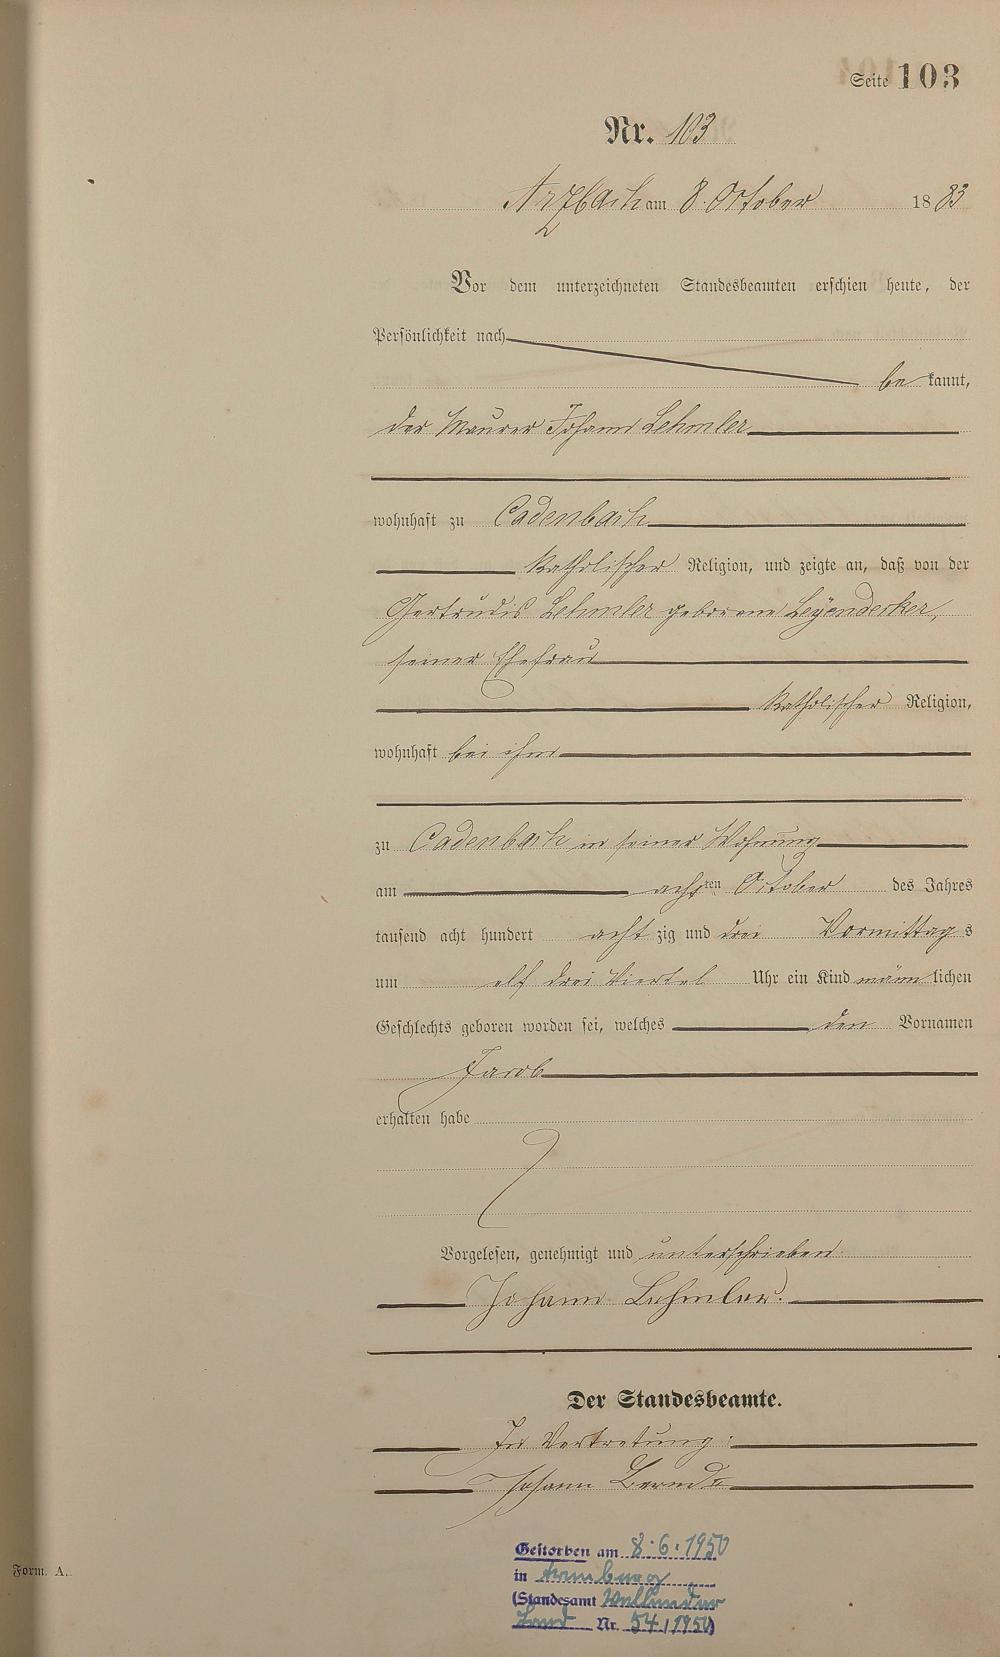 Seite 103
Nr. 103
Arzbach am 8. October 1883
Vor dem unterzeichneten Standesbeamten erschien heute, der
Persönlichkeit nach
be kannt,
der Maurer Johann Lehmler
wohnhaft zu Cadenbach
katholischer Religion, und zeigte an, daß von der
Gertrudis Lehmler geborene Leyendecker,
seiner Ehefrau
katholischer Religion,
wohnhaft bei ihm
zu Cadenbach in seiner Wohnung
am achten October des Jahres
tausend acht hundert acht zig und drei Vormittag s
um elf drei Viertel Uhr ein Kind männ lichen
Geschlechts geboren worden sei, welches den Vornamen
Jacob
erhalten habe
Vorgelesen, genehmigt und unterschrieben.
Johann Lehmler.
Der Standesbeamte.
In Vertretung:
Johann
Gestorben am 8.6.1950
in
(Standesamt
Nr. 54/1950)
Form. A.